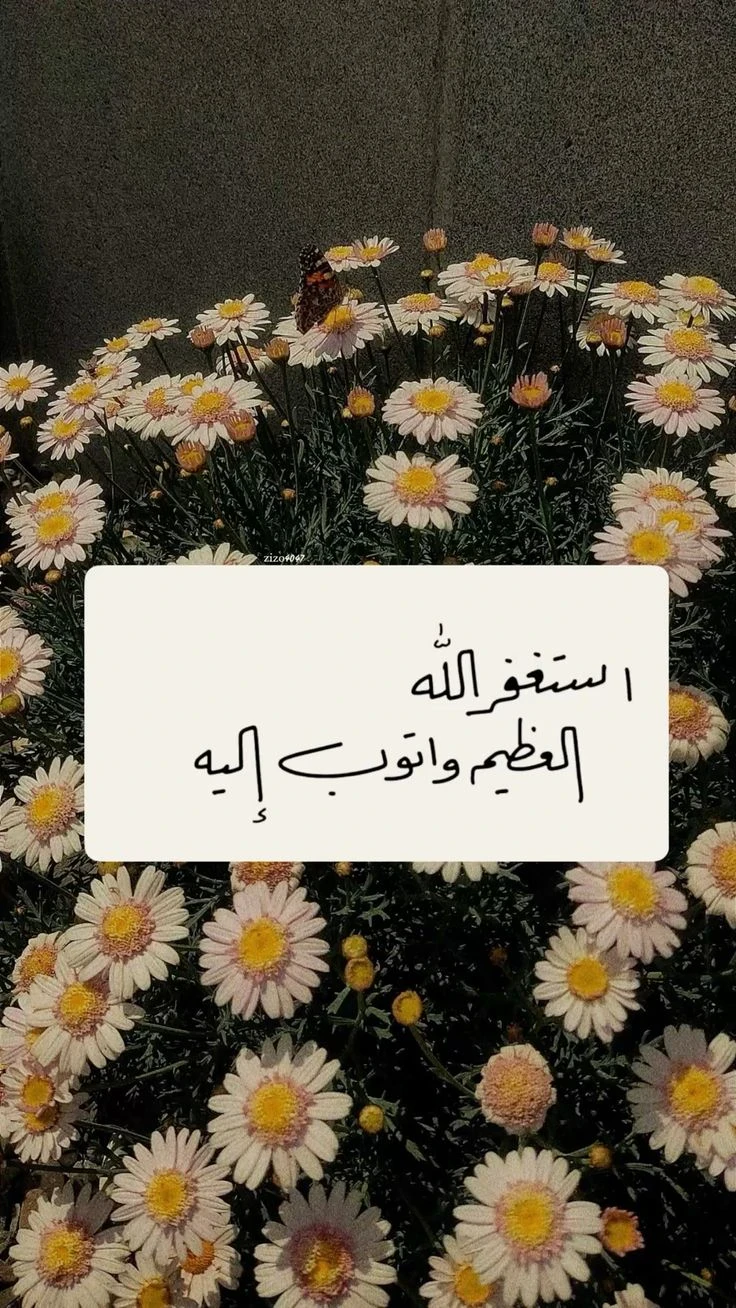 zizo4047
استغفر الله
العظيم واتوب إليه